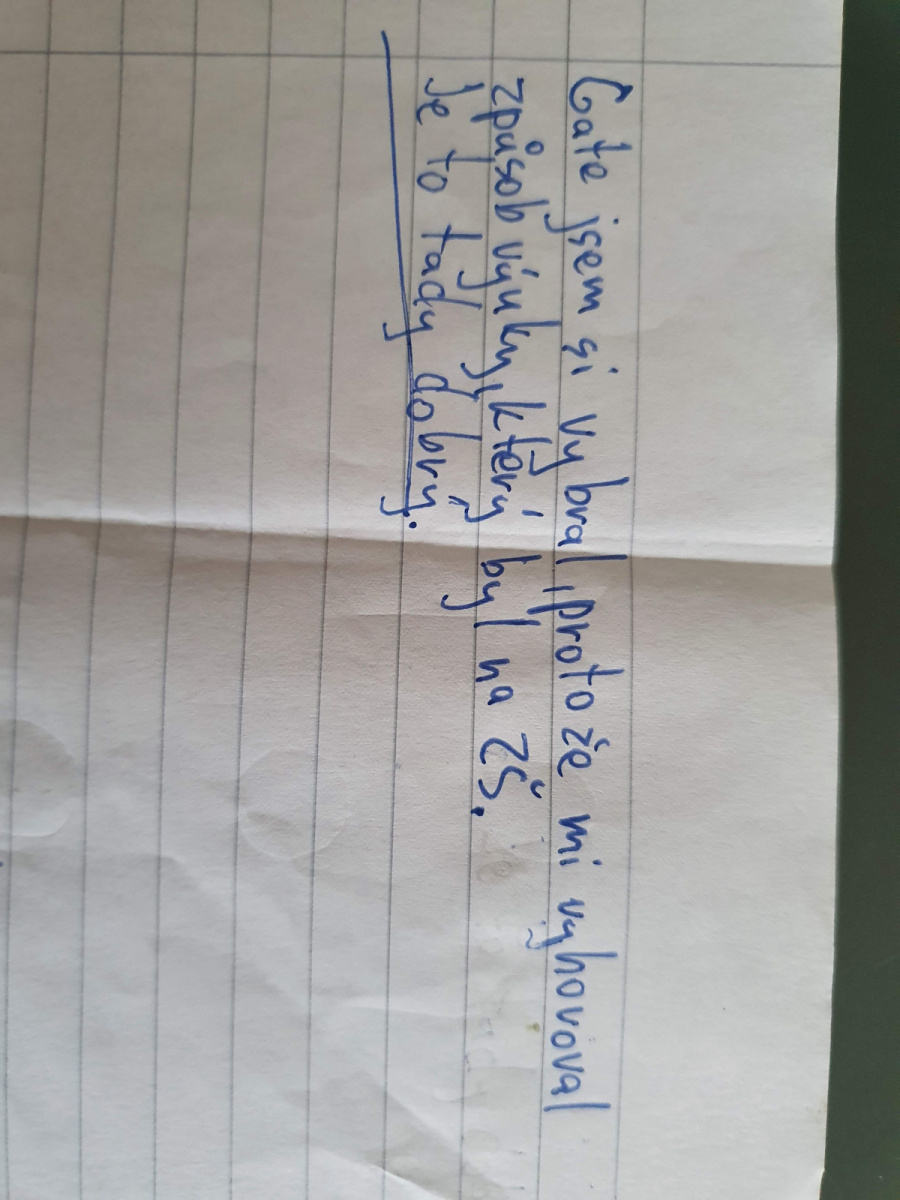 Gate jsem si vybral, protože mi vyhovoval
způsob výuky, který byl na ZŠ.
Je to tady dobrý.